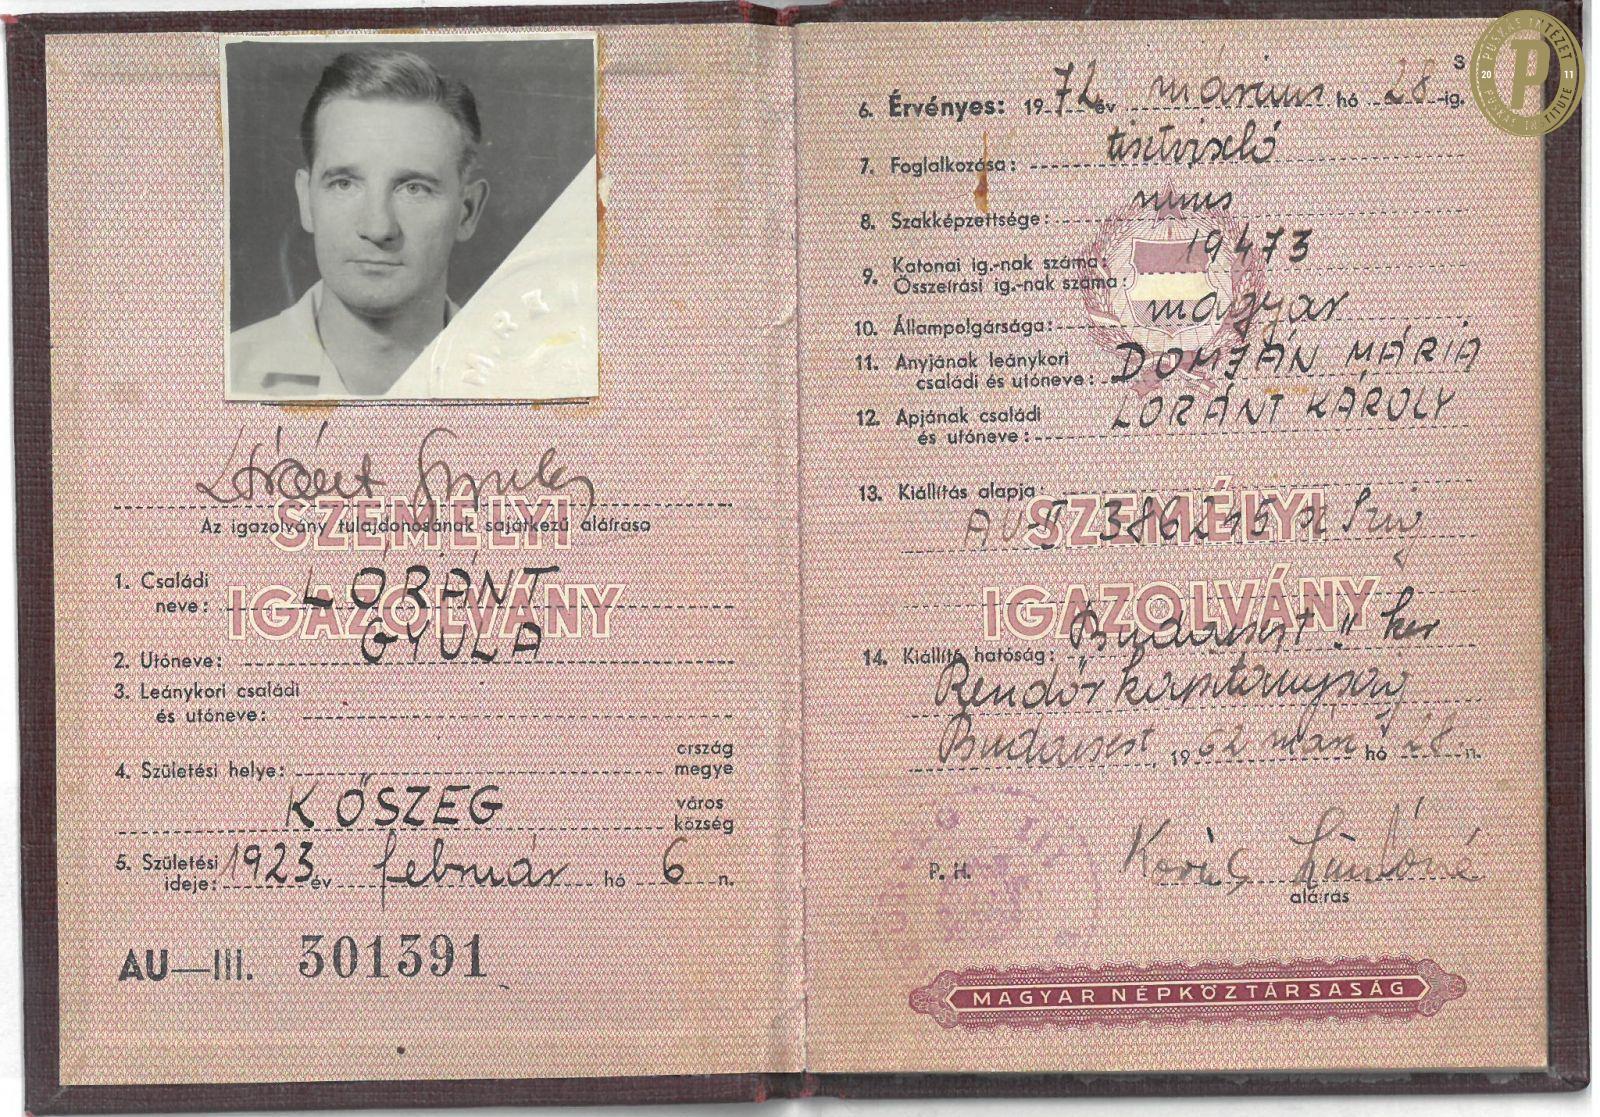 Lóránt Gyula
Az igazolvány tulajdonosának sajátkezű aláírása
SZEMÉLYI
IGAZOLVÁNY
1. Családi
neve: LÓRÁNT
2. Utóneve: GYULA
3. Leánykori családi
és utóneve:
ország
4. Születési helye: megye
KŐSZEG város
község
5. Születési
ideje: 1923 év február hó 6 n.
AU—III. 301391
PUSKÁS INTÉZET
20 P 11
PUSKÁS INSTITUTE
S
6. Érvényes: 1972 év március hó 28-ig.
7. Foglalkozása: tisztviselő
8. Szakképzettsége: nincs
9. Katonai ig.-nak száma: 19473
Összeírási ig.-nak száma:
10. Állampolgársága: magyar
11. Anyjának leánykori
családi és utóneve: DOMJÁN MÁRIA
12. Apjának családi LÓRÁNT KÁROLY
és utóneve:
13. Kiállítás alapja:
AU-II 386245
SZEMÉLYI
IGAZOLVÁNY
14. Kiállító hatóság: Budapest ker
Rendőrkapitányság
Budapest, 1962 márc hó 28 n.
P. H. Kovács
aláírás
MAGYAR NÉPKÖZTÁRSASÁG